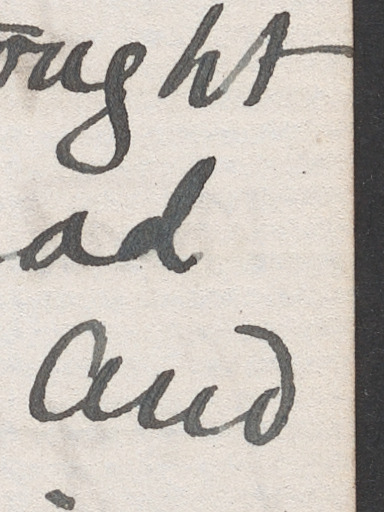 ought
ad
and